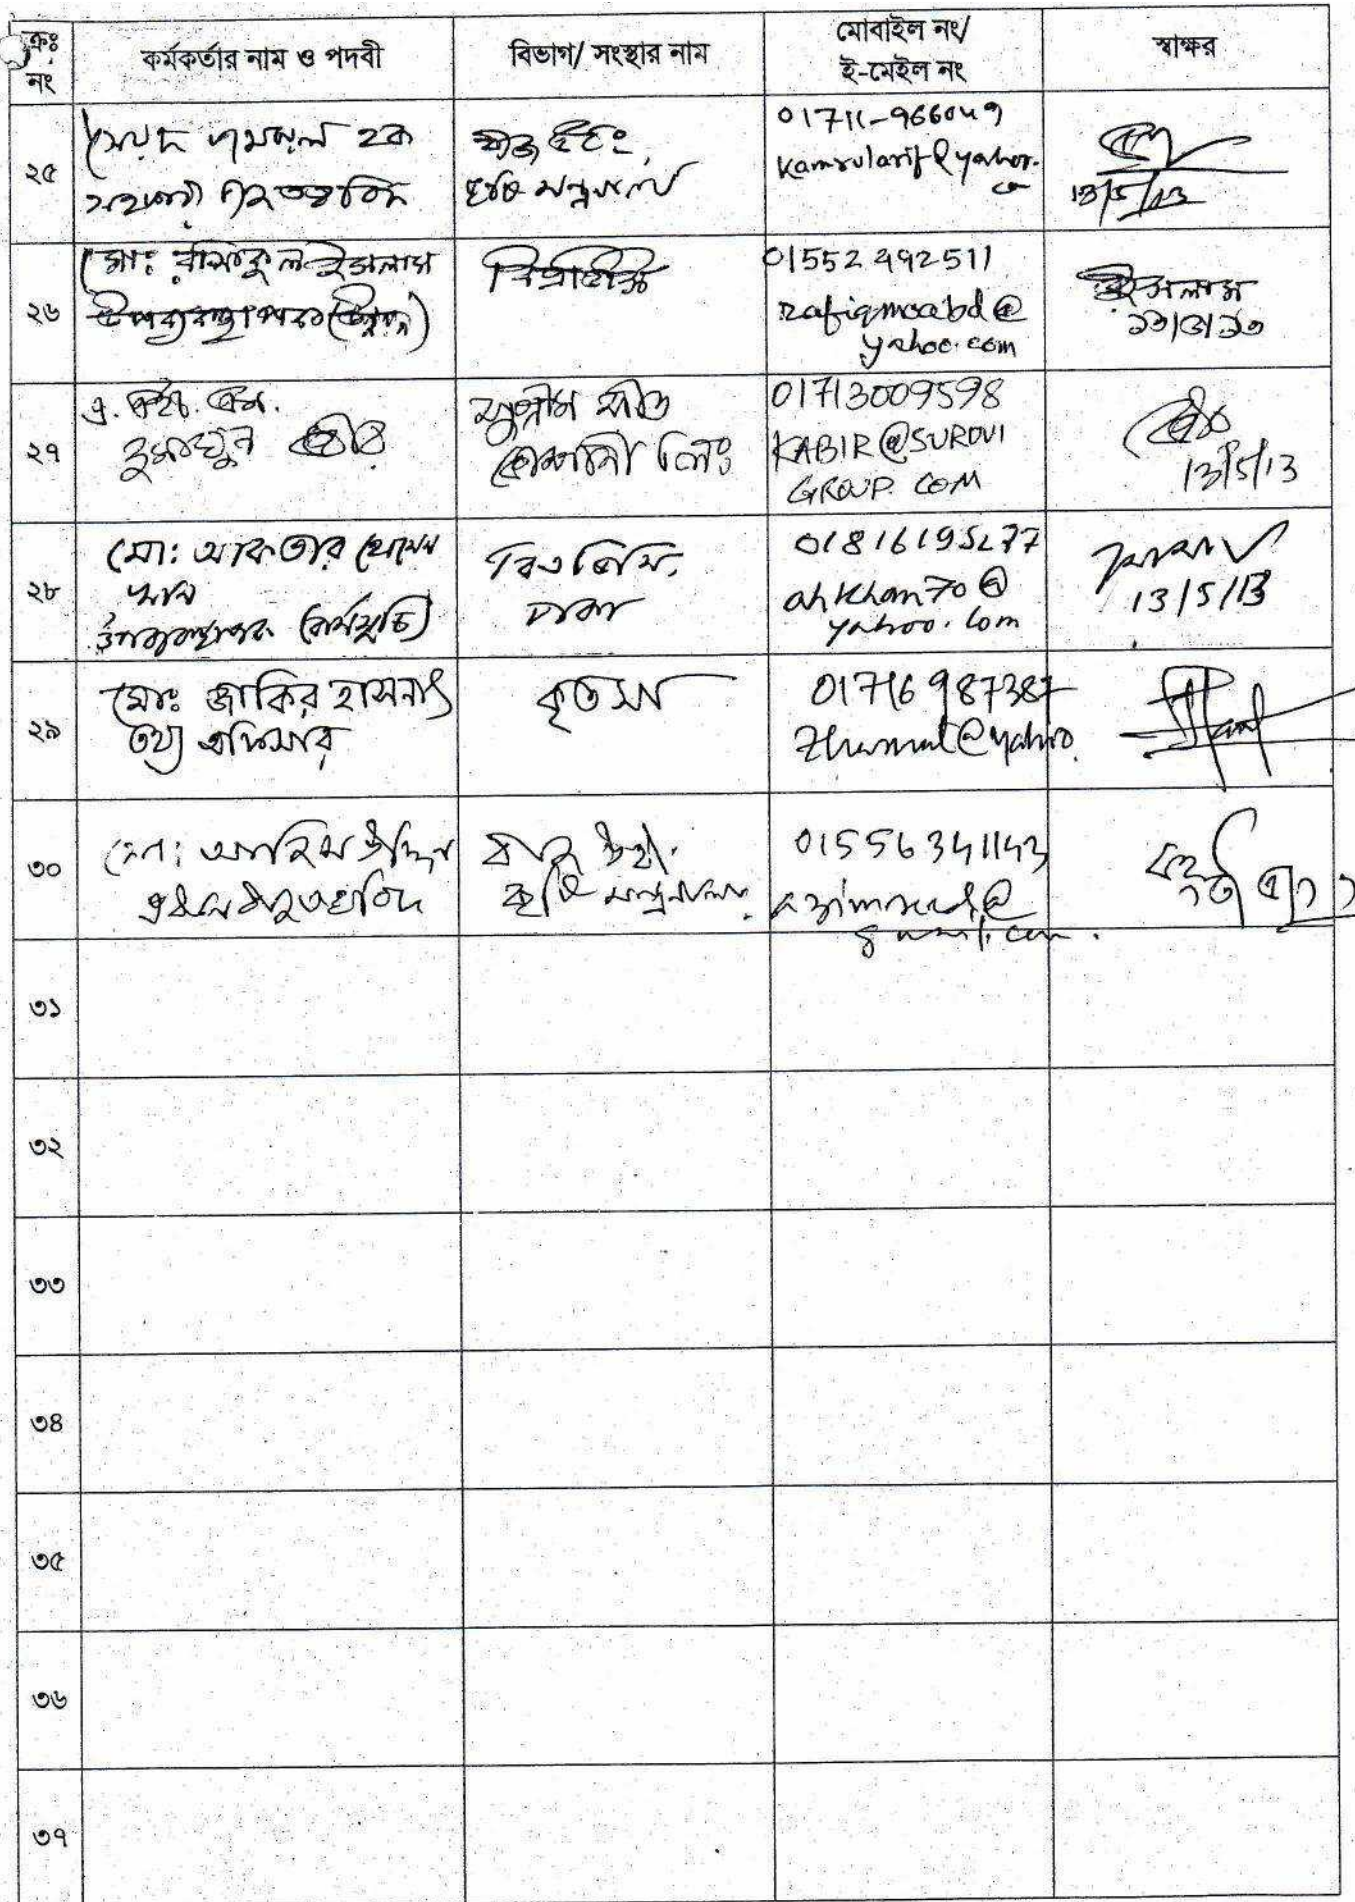 ক্রঃ নং
কর্মকর্তার নাম ও পদবী
বিভাগ/ সংস্থার নাম
মোবাইল নং/
ই-মেইল নং
স্বাক্ষর
২৫
সৈয়দ কামরুল হক
বীজ উইং,
কৃষি মন্ত্রণালয়
01711-966049
kamrularif@yahoo.
13/5/13
২৬
মো: রফিকুল ইসলাম
উপব্যবস্থাপক (উন্নয়ন)
01552492511
rafiqmccbd@
yahoo.com
ইসলাম
১৩/৫/১৩
২৭
এ. এইচ. এম.
হুমায়ুন কবীর
সুপ্রীম সীড
কোম্পানী লিঃ
01713009598
KABIR@SUROVI
GROUP.COM
13/5/13
২৮
মো: আকতার হোসেন
খান
উপব্যবস্থাপক (কর্মসূচি)
বিএডিসি,
ঢাকা
01816195277
ahkhan70@
yahoo.com
13/5/13
২৯
মোঃ জাকির হাসনাৎ
তথ্য অফিসার
কৃতসা
01716987387
@yahoo.
৩০
মো: আজিম উদ্দিন
প্রধান বীজতত্ত্ববিদ
বীজ উইং,
কৃষি মন্ত্রণালয়,
01556341143
gmail.com.
৩১
৩২
৩৩
৩৪
৩৫
৩৬
৩৭